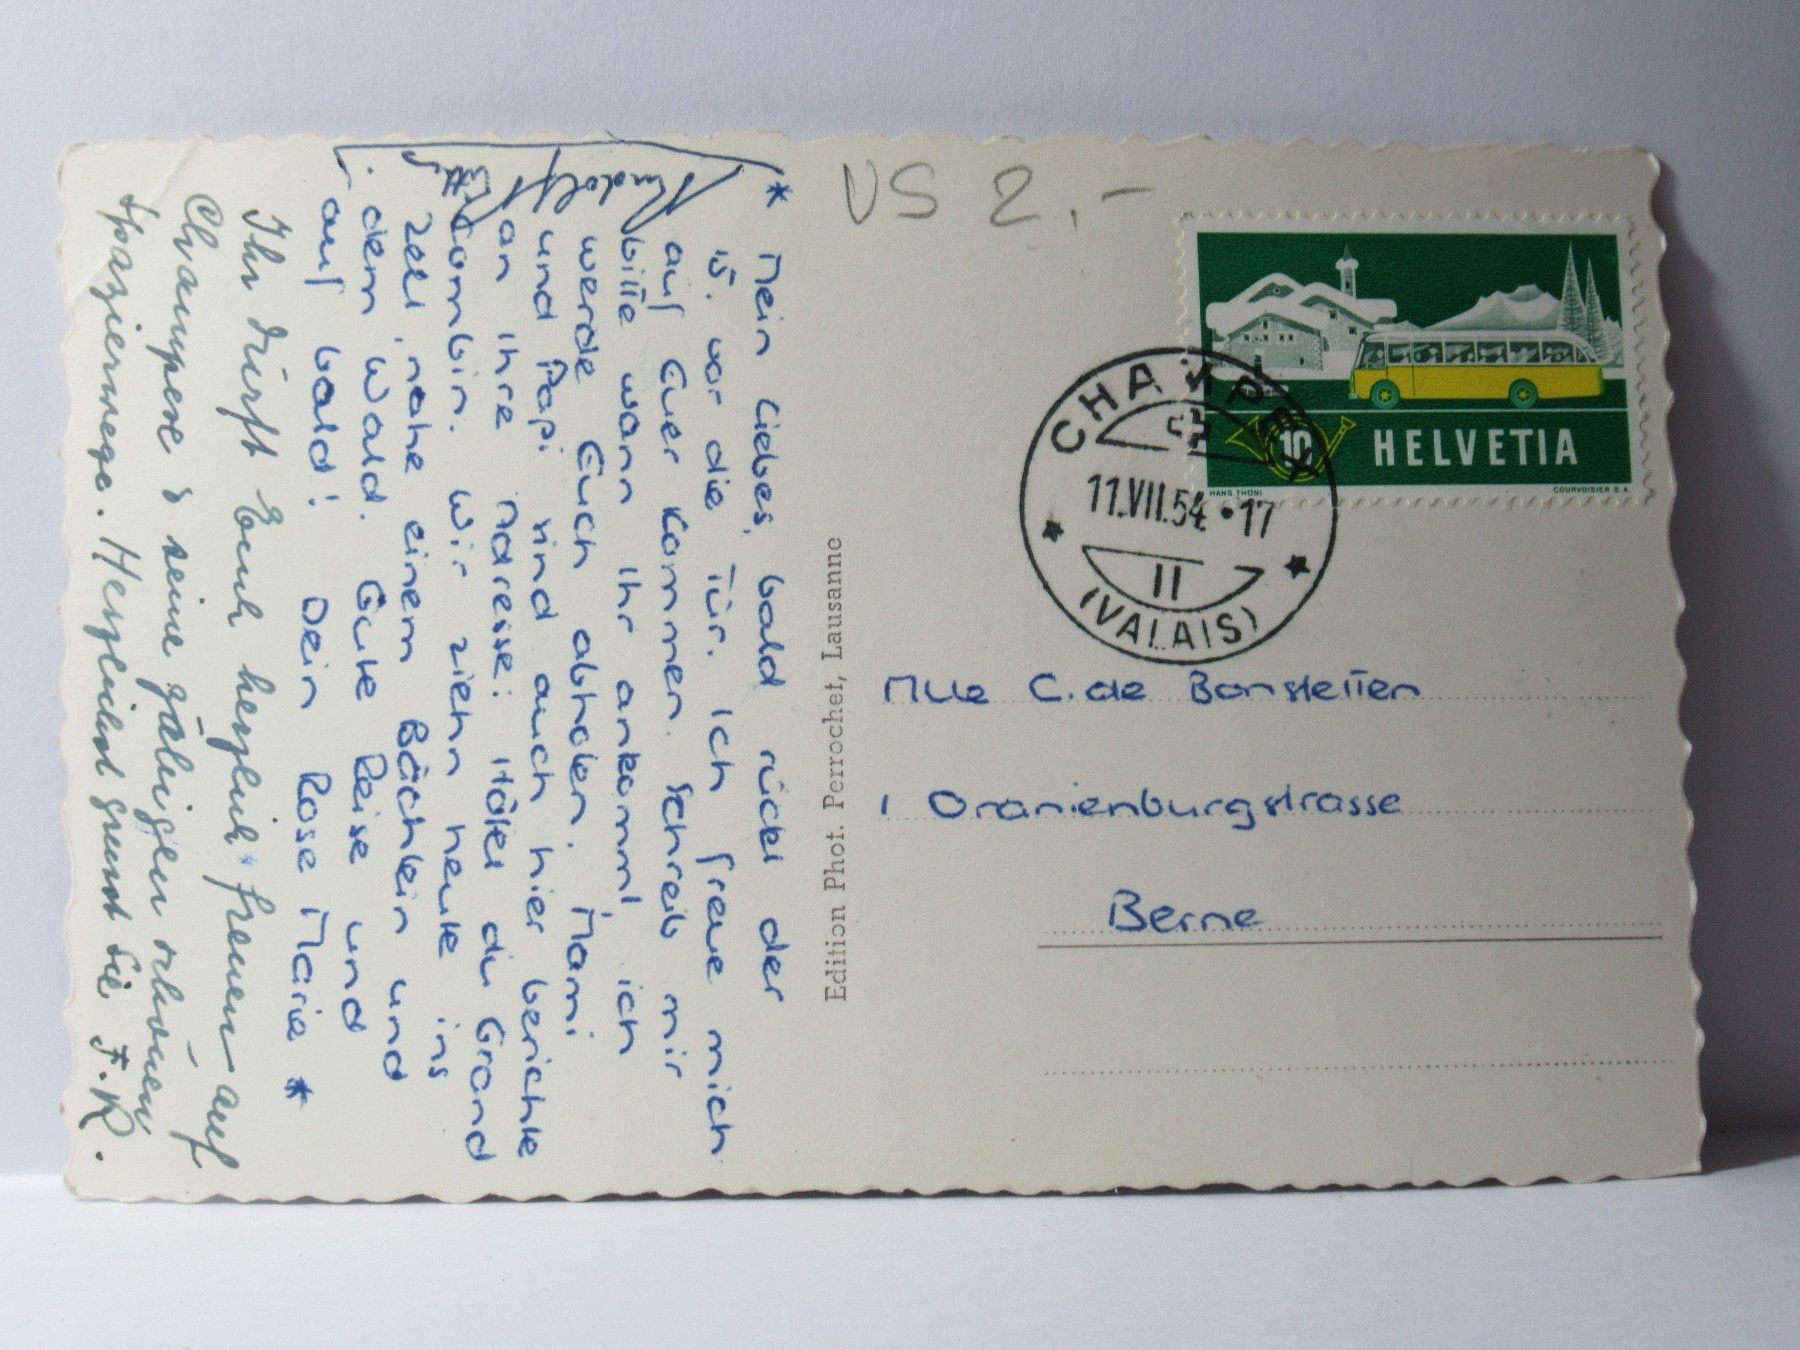 * Mein Liebes, bald rückt der
15. vor die Tür. Ich freue mich
auf Euer Kommen. Schreib mir
bitte wann Ihr ankommt, ich
werde Euch abholen. Mami
und Papi sind auch hier berichte
an Ihre Adresse: Hôtel du Grand
Combin. Wir ziehn heute ins
Zelt, nahe einem Bächlein und
dem Wald. Gute Reise und
auf bald! Dein Rose Marie *
Rudolf
Ihr dürft Euch herzlich freuen auf
Champex & seine gäbigen schönen
Spazierwege. Herzlichst grüsst Sie F.R.
Edition Phot. Perrochet, Lausanne
VS 2.-
HELVETIA
10
HANS THÖNI
COURVOISIER S.A.
CHAMPEX
11.VII.54 •17
II
(VALAIS)
Mlle C. de Bonstetten
1 Oranienburgstrasse
Berne